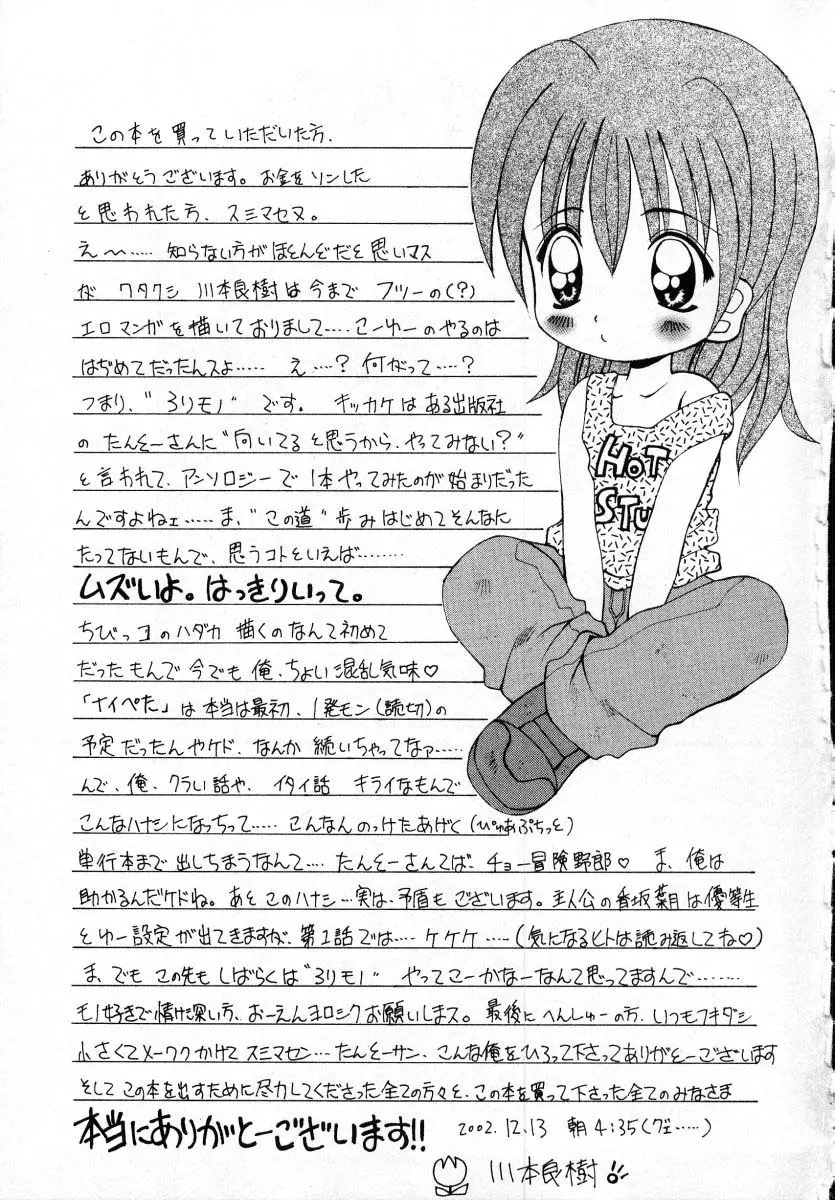 この本を買っていただいた方、
ありがとうございます。お金をソンした
と思われた方、スミマセヌ。
え〜…… 知らない方がほとんどだと思いマス
が ワタクシ 川本良樹は今まで フツーの(?)
エロマンガを描いておりまして…… こーゆーのやるのは
はぢめてだったんスよ…… え…‥? 何がって…‥?
つまり、"ろリモノ"です。 キッカケはある出版社
の たんとーさんに"向いてると思うから、やってみない?"
と言われて、アンソロジーで 1本やってみたのが始まりだった
んですよねェ…… ま、"この道"歩みはじめてそんなに
たってないもんで、思うコトといえば………
ムズいよ。はっきりいって。
ちびっコのハダカ 描くのなんて初めて
だったもんで今でも俺、ちょい混乱気味♡
「ナイぺた」は本当は最初、1発モン(読切)の
予定だったんやケド、なんか 続いちゃってなァ……
んで、俺、クラい話や、イタイ話 キライなもんで
こんなハナシになっちって…… こんなんのっけたあげく(ぴゅあぷちっと)
単行本まで出しちまうなんて…‥ たんとーさんてば、チョー冒険野郎♡ ま、俺は
助かるんだケドね。あと このハナシ…実は、矛盾もございます。主人公の香坂葉月は優等生
とゆー設定が出てきますが、第1話では…‥ ケケケ……(気になるヒトは読み返してね♡)
ま、でもこの先もしばらくは"ろリモノ" やってこーかなーなんて思ってますんで………
モノ好きで情け深い方、おーえんヨロシクお願いしまス。 最後に へんしゅーの方、いつもフキダシ
小さくてメーワクかけてスミマセン…たんとーサン、こんな俺をひろって下さってありがとーございます
そしてこの本を出すために尽力してくださった全ての方々と、この本を買って下さった全てのみなさま
本当にありがとーございます!!
2002.12.13 朝4:35(グェ……)
川本良樹
HOT
STU